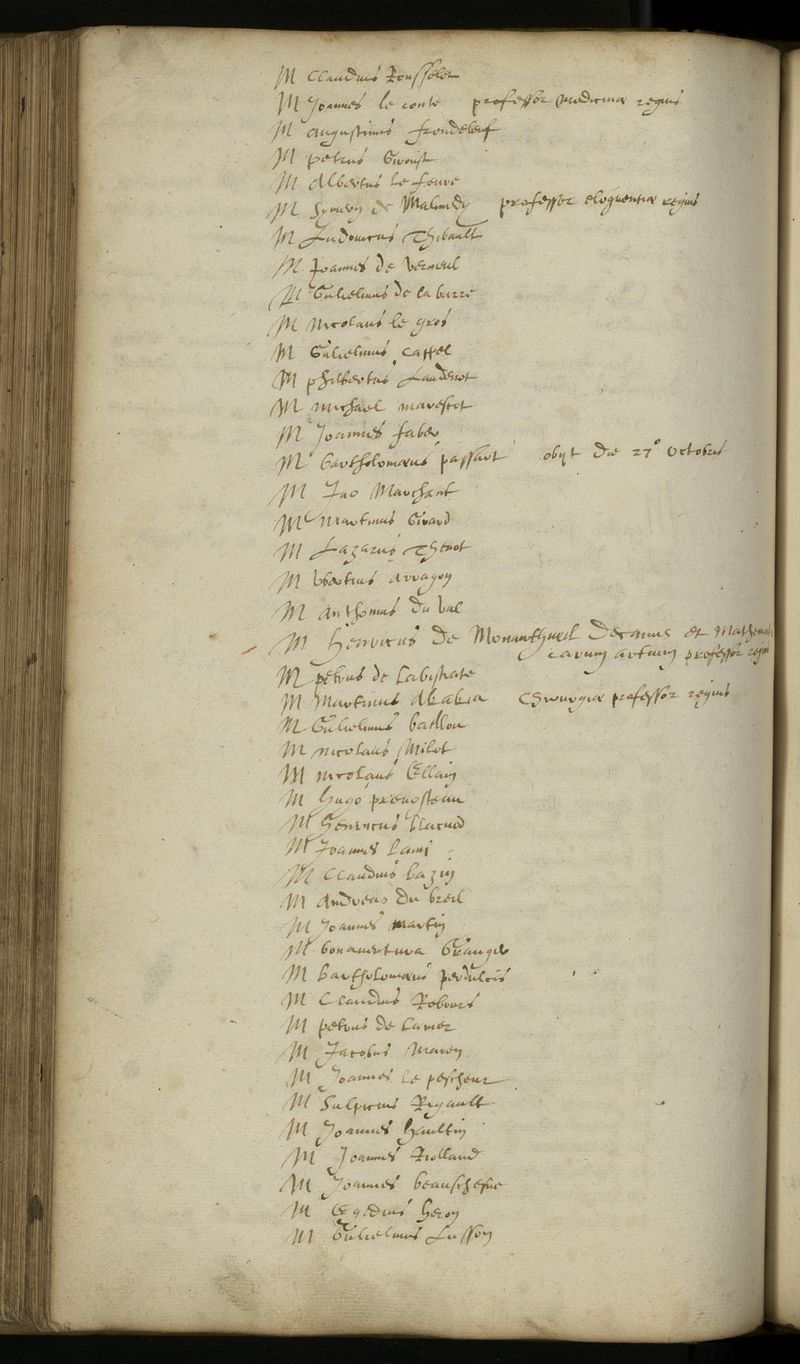 M Claudius Rousselet
M Joannes le conte professor medicinæ regius
M augustinus frondebeuf
M petrus Giroust
M Albertus le fevre
M Symon de Malmedy professor eloquentiæ regius
M Ludovicus Thibault
M Joannes de Verneuil
M Gulielmus de la barre
M Nicolaus le gros
M Gulielmus cappel
M philbertus
M michael marescot
M Joannes faber
M Bartholomæus passart obijt die 27º Octobris
M Ivo Marchant
M Martinus Girard
M Lazarus Thenot
M Ubertus arragon
M anthonius du Val
M Henricus de Monantheuil Decanus et Mathemati
carum artium professor regius
M petrus de labistrate
M Martinus akakia Chirurgiæ professor regius
M Gulielmus baillou
M nicolaus Milot
M nicolaus Ellain
M Hugo prevosteau
M Henricus blacuod
M Joannes Lami
M Claudius bazin
M Andreas du breil
M Joannes martin
M bonaventura Granger
M bartholomæus perdulcis
M Claudius Rebours
M petrus de
M Jacobus
M Joannes le pescheur
M Sulpicius Rigault
M Joannes Haultin
M Joannes Riolland
M Joannes beauschesne
M Egidius Heron
M Gulielmus Lusson